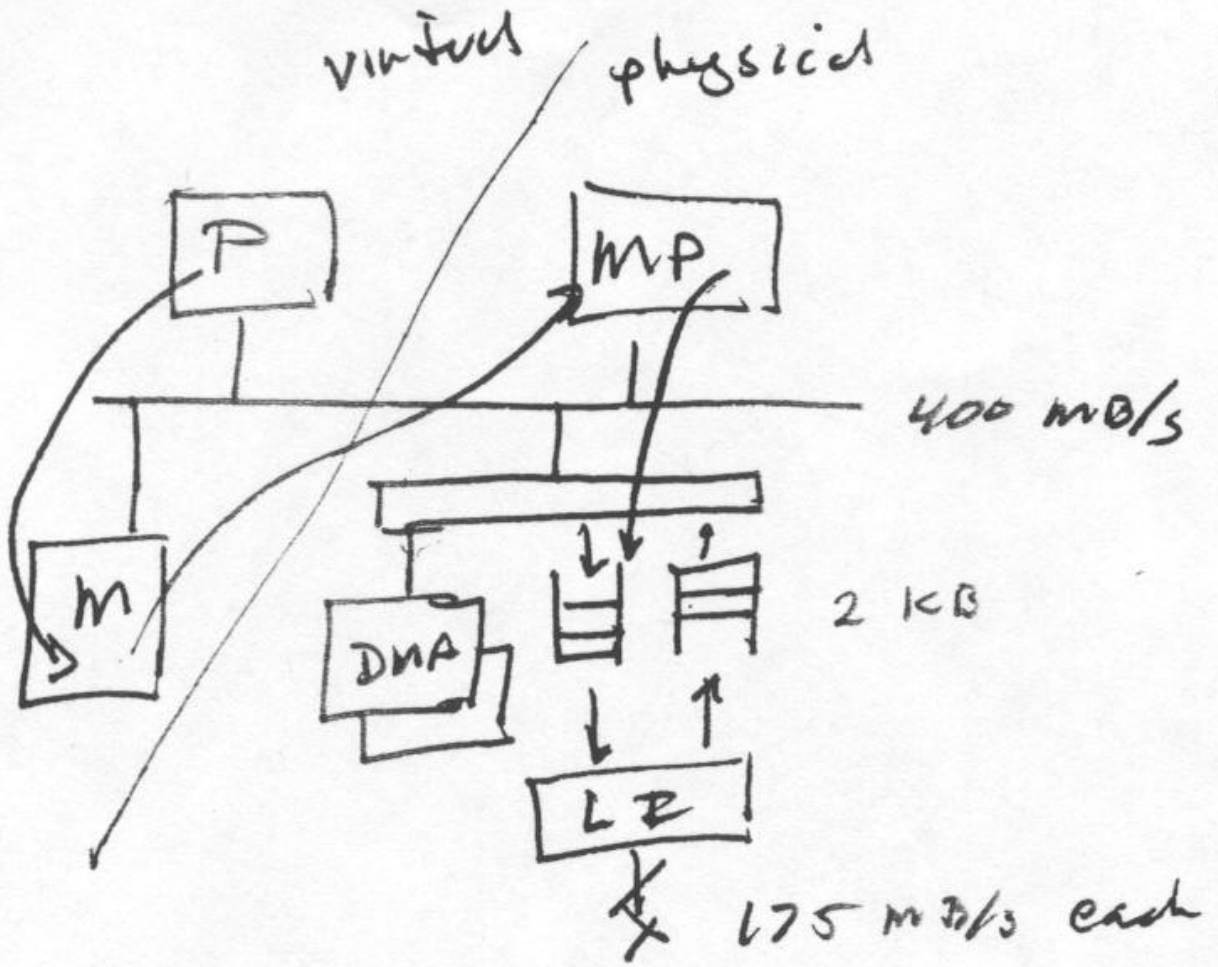 virtual physical
P
MP
400 MB/s
M
DMA
2 KB
175 MB/s each